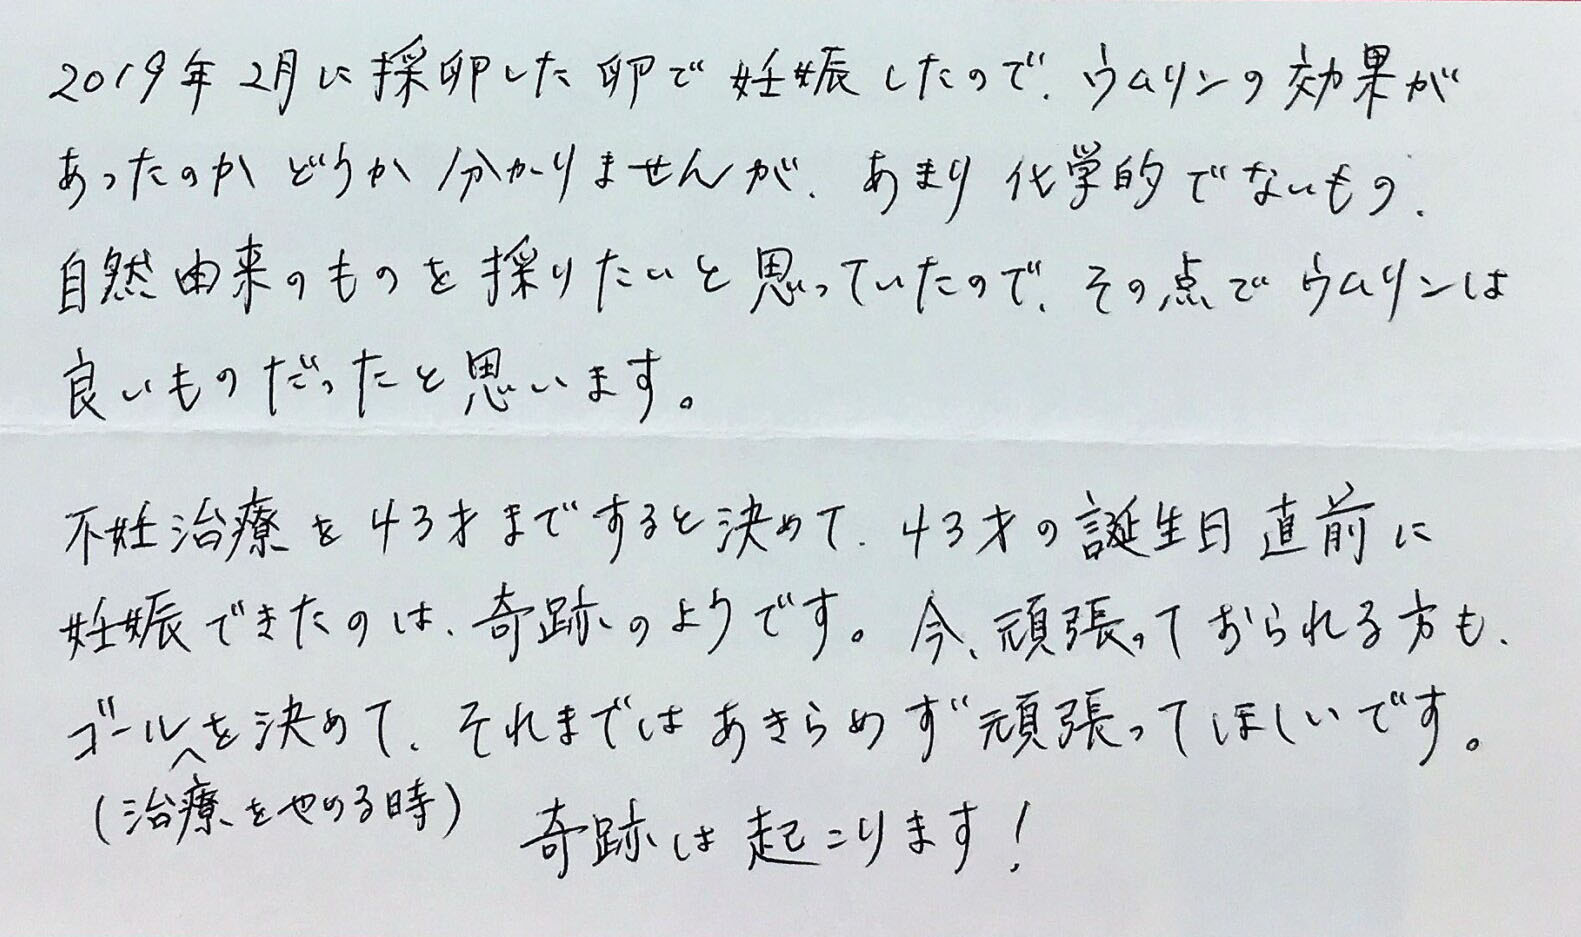 2019年2月に採卵した卵で妊娠したので、ウムリンの効果が
あったのかどうか分かりませんが、あまり化学的でないもの、
自然由来のものを採りたいと思っていたので、その点でウムリンは
良いものだったと思います。
不妊治療を43才まですると決めて、43才の誕生日直前に
妊娠できたのは、奇跡のようです。今、頑張っておられる方も、
ゴール(治療をやめる時)を決めて、それまではあきらめず頑張ってほしいです。
奇跡は起こります!